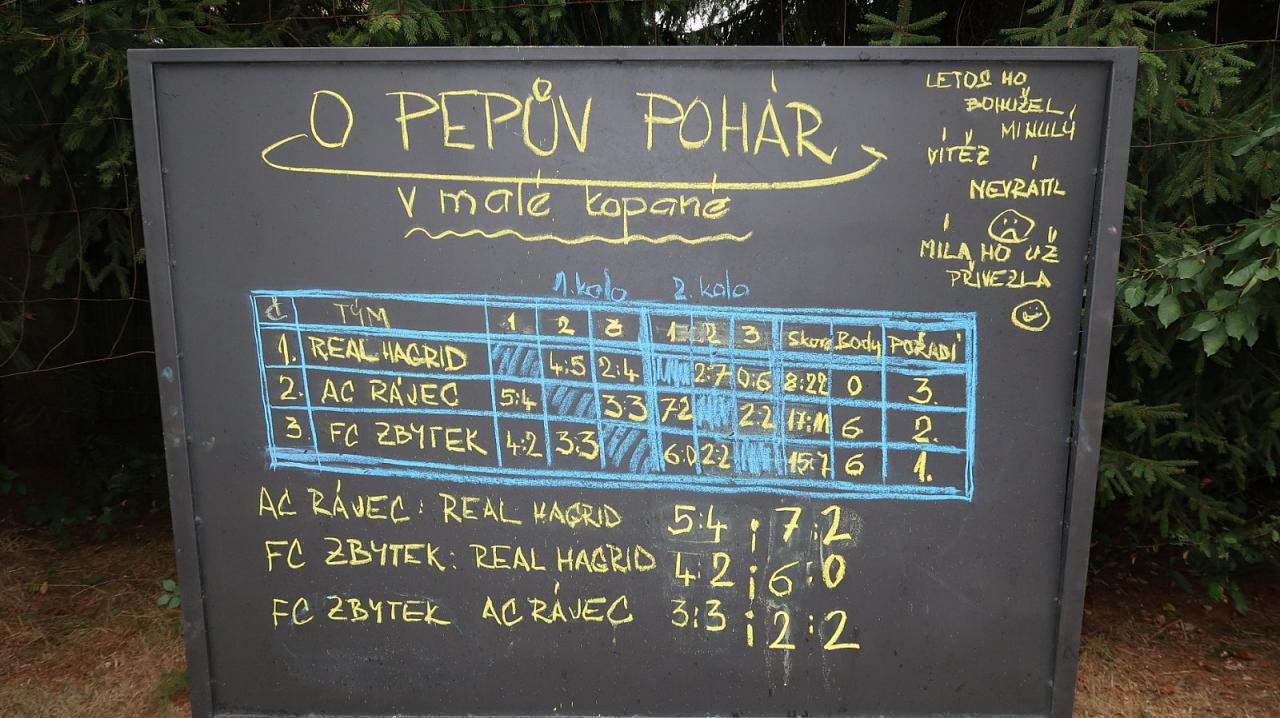 O PEPŮV POHÁR
v malé kopané
LETOS HO
BOHUŽEL
MINULÝ
VÍTĚZ
NEVRÁTIL
MÍLA HO UŽ
PŘIVEZLA
1. kolo 2. kolo
Č TÝM 1 2 3 1 2 3 Skore Body POŘADÍ
1. REAL HAGRID 4:5 2:4 2:7 0:6 8:22 0 3.
2. AC RÁJEC 5:4 3:3 7:2 2:2 17:11 6 2.
3. FC ZBYTEK 4:2 3:3 6:0 2:2 15:7 6 1.
AC RÁJEC : REAL HAGRID 5:4 ; 7:2
FC ZBYTEK : REAL HAGRID 4:2 ; 6:0
FC ZBYTEK AC RÁJEC 3:3 ; 2:2